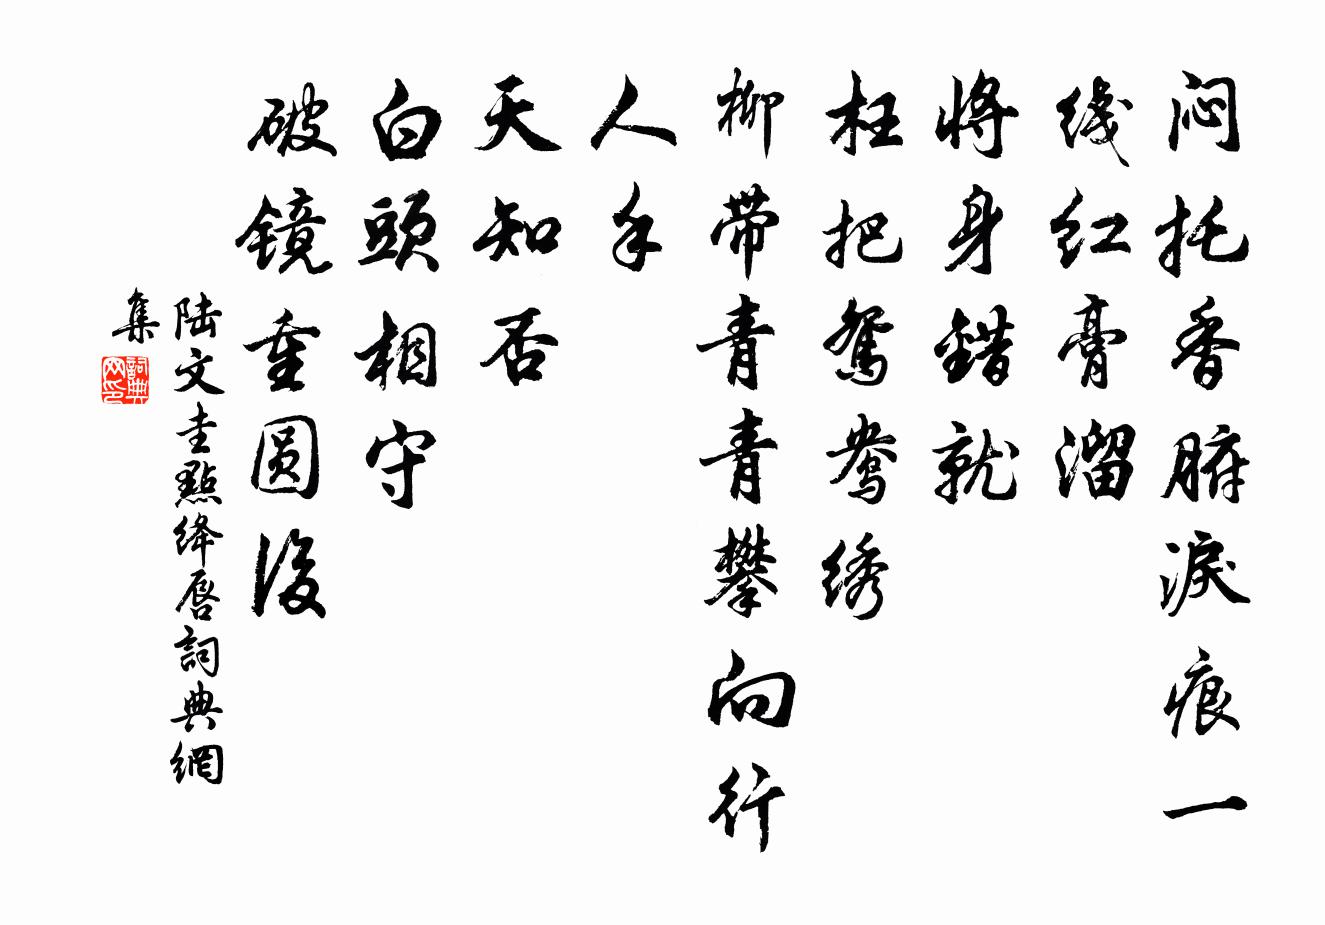 闷托香腑淚痕一
线红膏溜
將身錯就
枉把鸳鸯绣
柳带青青攀向行
人手
天知否
白頭相守
破镜重圆後
陆文圭點绛唇詞典網
集
詞典
网印